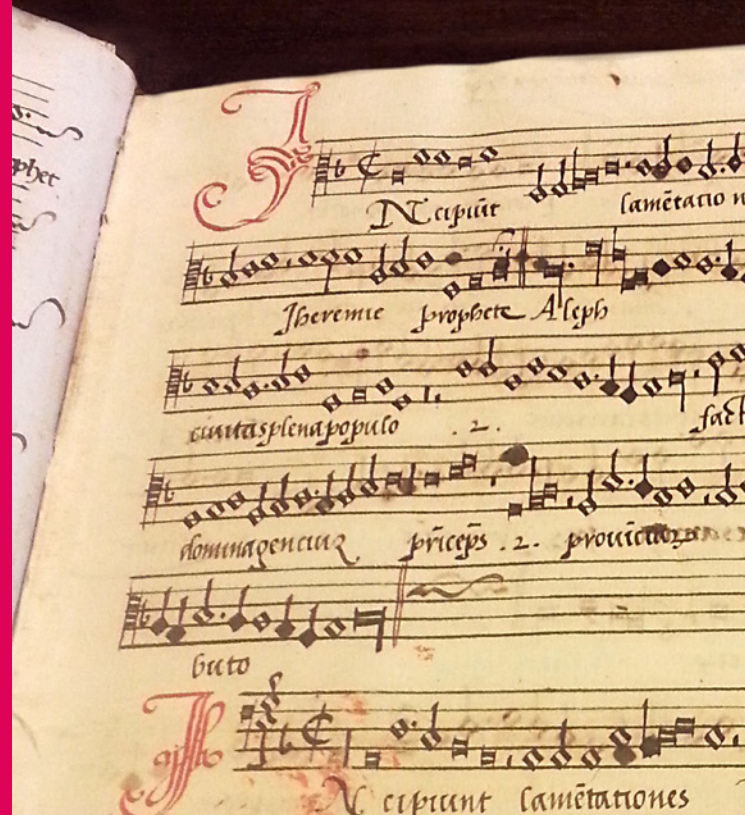 ophet
INcipiūt lamētatio n
Jheremie prophete Aleph
civitas plena populo .2. fact
domina genciuꝫ prīceps .2. provīciarꝫ
buto
INcipiunt lamētationes